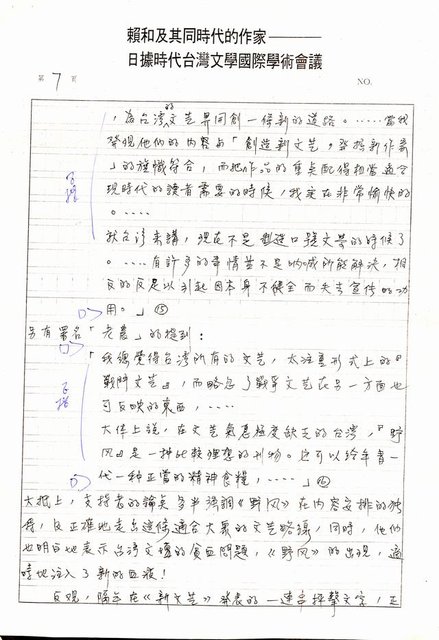 賴和及其同時代的作家————
日據時代台灣文學國際學術會議
第 7 頁
NO.
，為台灣的文藝界開創一條新的道路。……當我
發現他們的內容與「創造新文藝，發掘新作家
」的旗幟符合，而把作品的重點配得相當適合
現時代的讀者需要的時候，我實在非常愉快的
。……
就台灣來講，現在不是製造口號文學的時候了
。……有許多的事情並不是吶喊所能解決，相
反的反是以引起因本身不健全而失去宣傳的功
用。」⑮
另有署名「老農」的提到：
「我總覺得台灣所有的文藝，太注重形式上的『
戰鬥文藝』，而略忽了戰爭文藝在另一方面也
可反映的東西，……
大體上說，在文藝氣息極度缺乏的台灣，『野
風』是一種比較理想的刊物。也可以給年青一
代一種正當的精神食糧，……」⑯
大抵上，支持者的論點多半強調《野風》在內容安排的獨
得，及正確地走出這條適合大眾的文藝路線，同時，他們
也明白地表示台灣文壇的貧血問題，《野風》的出現，適
時地注入了新的血液！
反觀，隔年在《新文藝》發表的一連串抨擊文字，正